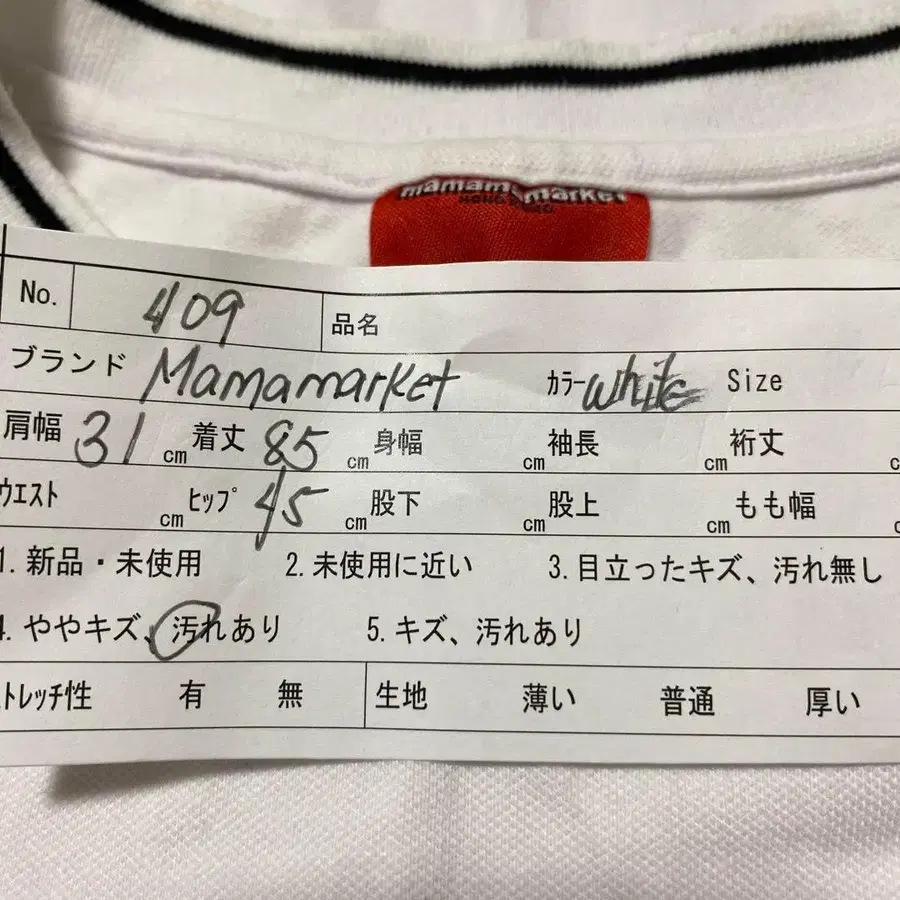 mamamarket
No. 409 品名
ブランド Mamamarket カラー white Size
肩幅 31 cm 着丈 85 cm 身幅 cm 袖長 cm 裄丈 c
ウエスト cm ヒップ 45 cm 股下 cm 股上 cm もも幅 c
1. 新品・未使用 2. 未使用に近い 3. 目立ったキズ、汚れ無し
4. ややキズ、汚れあり 5. キズ、汚れあり
トレッチ性 有 無 生地 薄い 普通 厚い